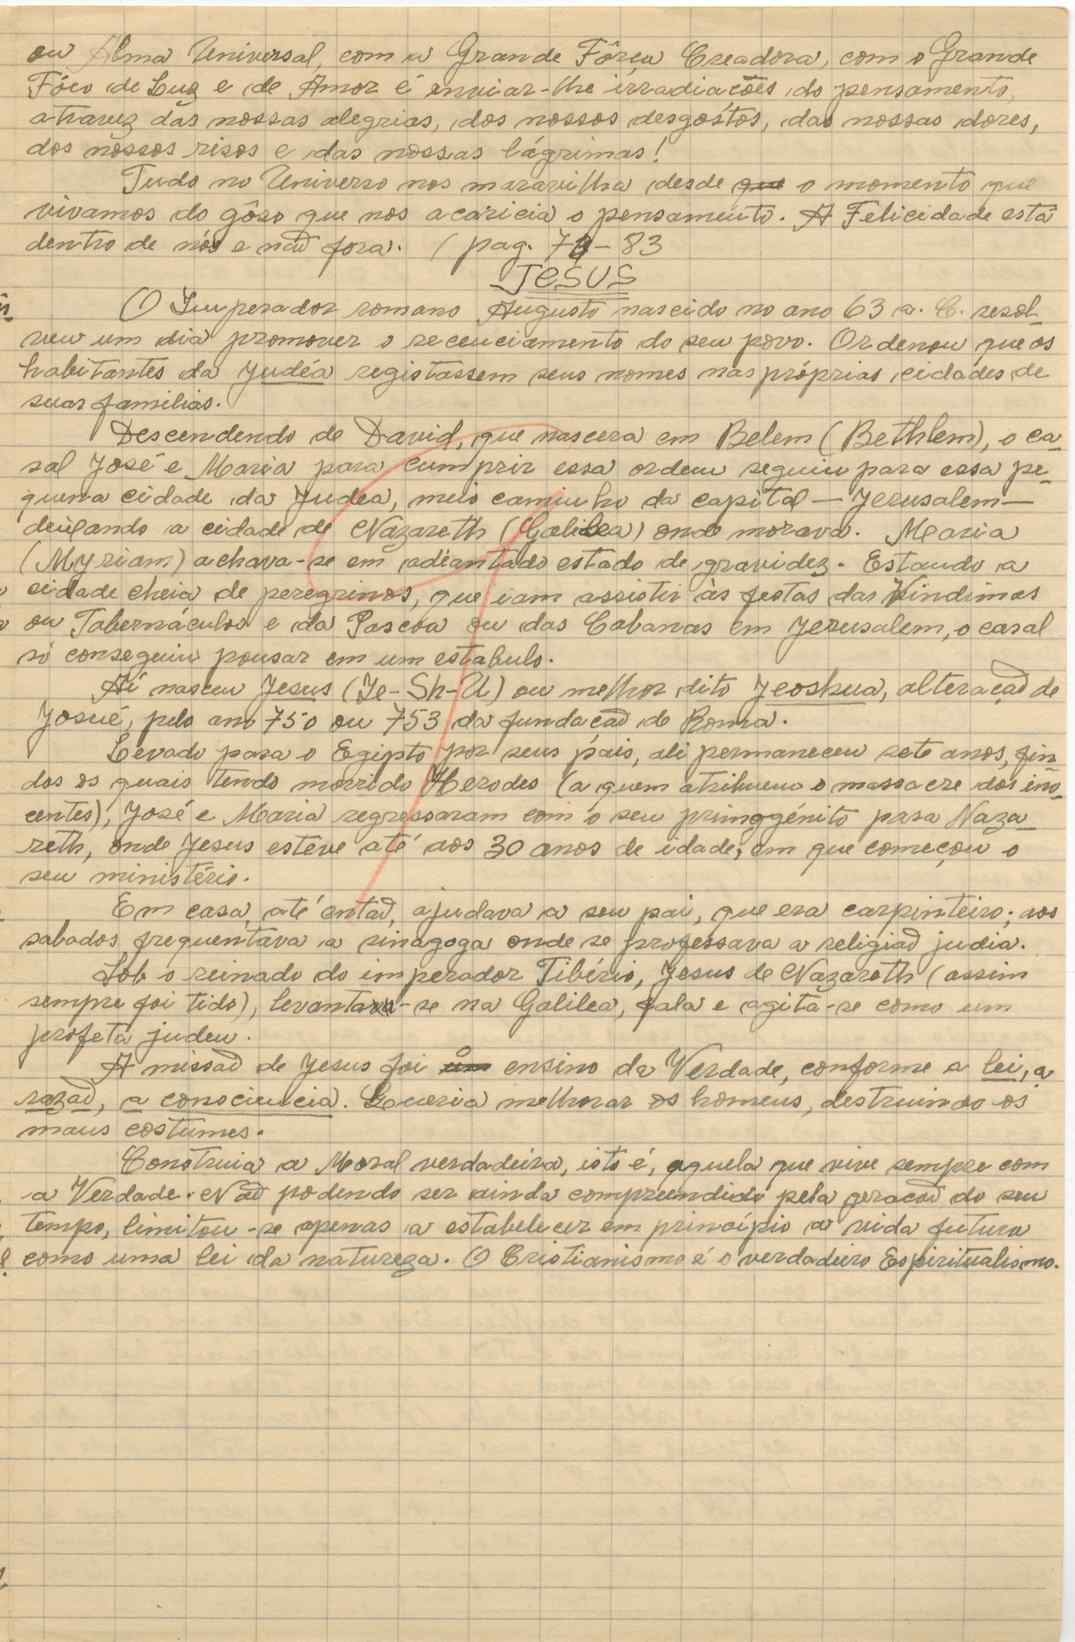 ou Alma Universal, com a Grande Fôrça Creadora, com o Grande
Fóco de Luz e de Amor é enviar-lhe irradiações do pensamento,
atravez das nossas alegrias, dos nossos desgôstos, das nossas dores,
dos nossos risos e das nossas lágrimas!
Tudo no Universo nos maravilha desde que o momento que
vivamos do gôso que nos acaricia o pensamento. A Felicidade está
dentro de nós e não fora. (pag. 78-83
JESUS
O Imperador romano Augusto nascido no ano 63 a. C. resol-
veu um dia promover o recenciamento do seu povo. Ordenou que os
habitantes da Judéa registassem seus nomes nas próprias cidades de
suas familias.
Descendendo de David, que nascera em Belem (Bethlem), o ca-
sal José e Maria para cumprir essa ordem seguiu para essa pe-
quena cidade da Judea, meio caminho da capital — Jerusalem —
deixando a cidade de Nazareth (Galilea) onde morava. Maria
(Myriam) achava-se em adeantado estado de gravidez. Estando a
cidade cheia de peregrinos, que iam assistir às festas das Vindimas
ou Tabernáculos e da Pascoa ou das Cabanas em Jerusalem, o casal
só conseguiu pousar em um estabulo.
Aí nasceu Jesus (Je-Sh-U) ou melhor dito Jeoshua, alteração de
Josué, pelo ano 750 ou 753 da fundação de Roma.
Levado para o Egipto por seus pais, ali permaneceu sete anos, fin-
dos os quais tendo morrido Herodes (a quem atribuem o massacre dos ino-
centes), José e Maria regressaram com o seu primogénito para Naza-
reth, onde Jesus estêve até aos 30 anos de idade, em que começou o
seu ministério.
Em casa, até então, ajudava a seu pai, que era carpinteiro; aos
sabados frequentava a sinagoga onde se professava a religião judia.
Sob o reinado do imperador Tibério, Jesus de Nazareth (assim
sempre foi tido), levantava-se na Galilea, fala e agita-se como um
profeta judeu.
A missão de Jesus foi um o ensino da Verdade, conforme a lei, a
razão, a consciencia. Queria melhorar os homens, destruindo os
maus costumes.
Construia a Moral verdadeira, isto é, aquela que vive sempre com
a Verdade. Não podendo ser ainda compreendido pela geração do seu
tempo, limitou-se apenas a estabelecer em princípio a vida futura
como uma lei da natureza. O Cristianismo é o verdadeiro Espiritualismo.